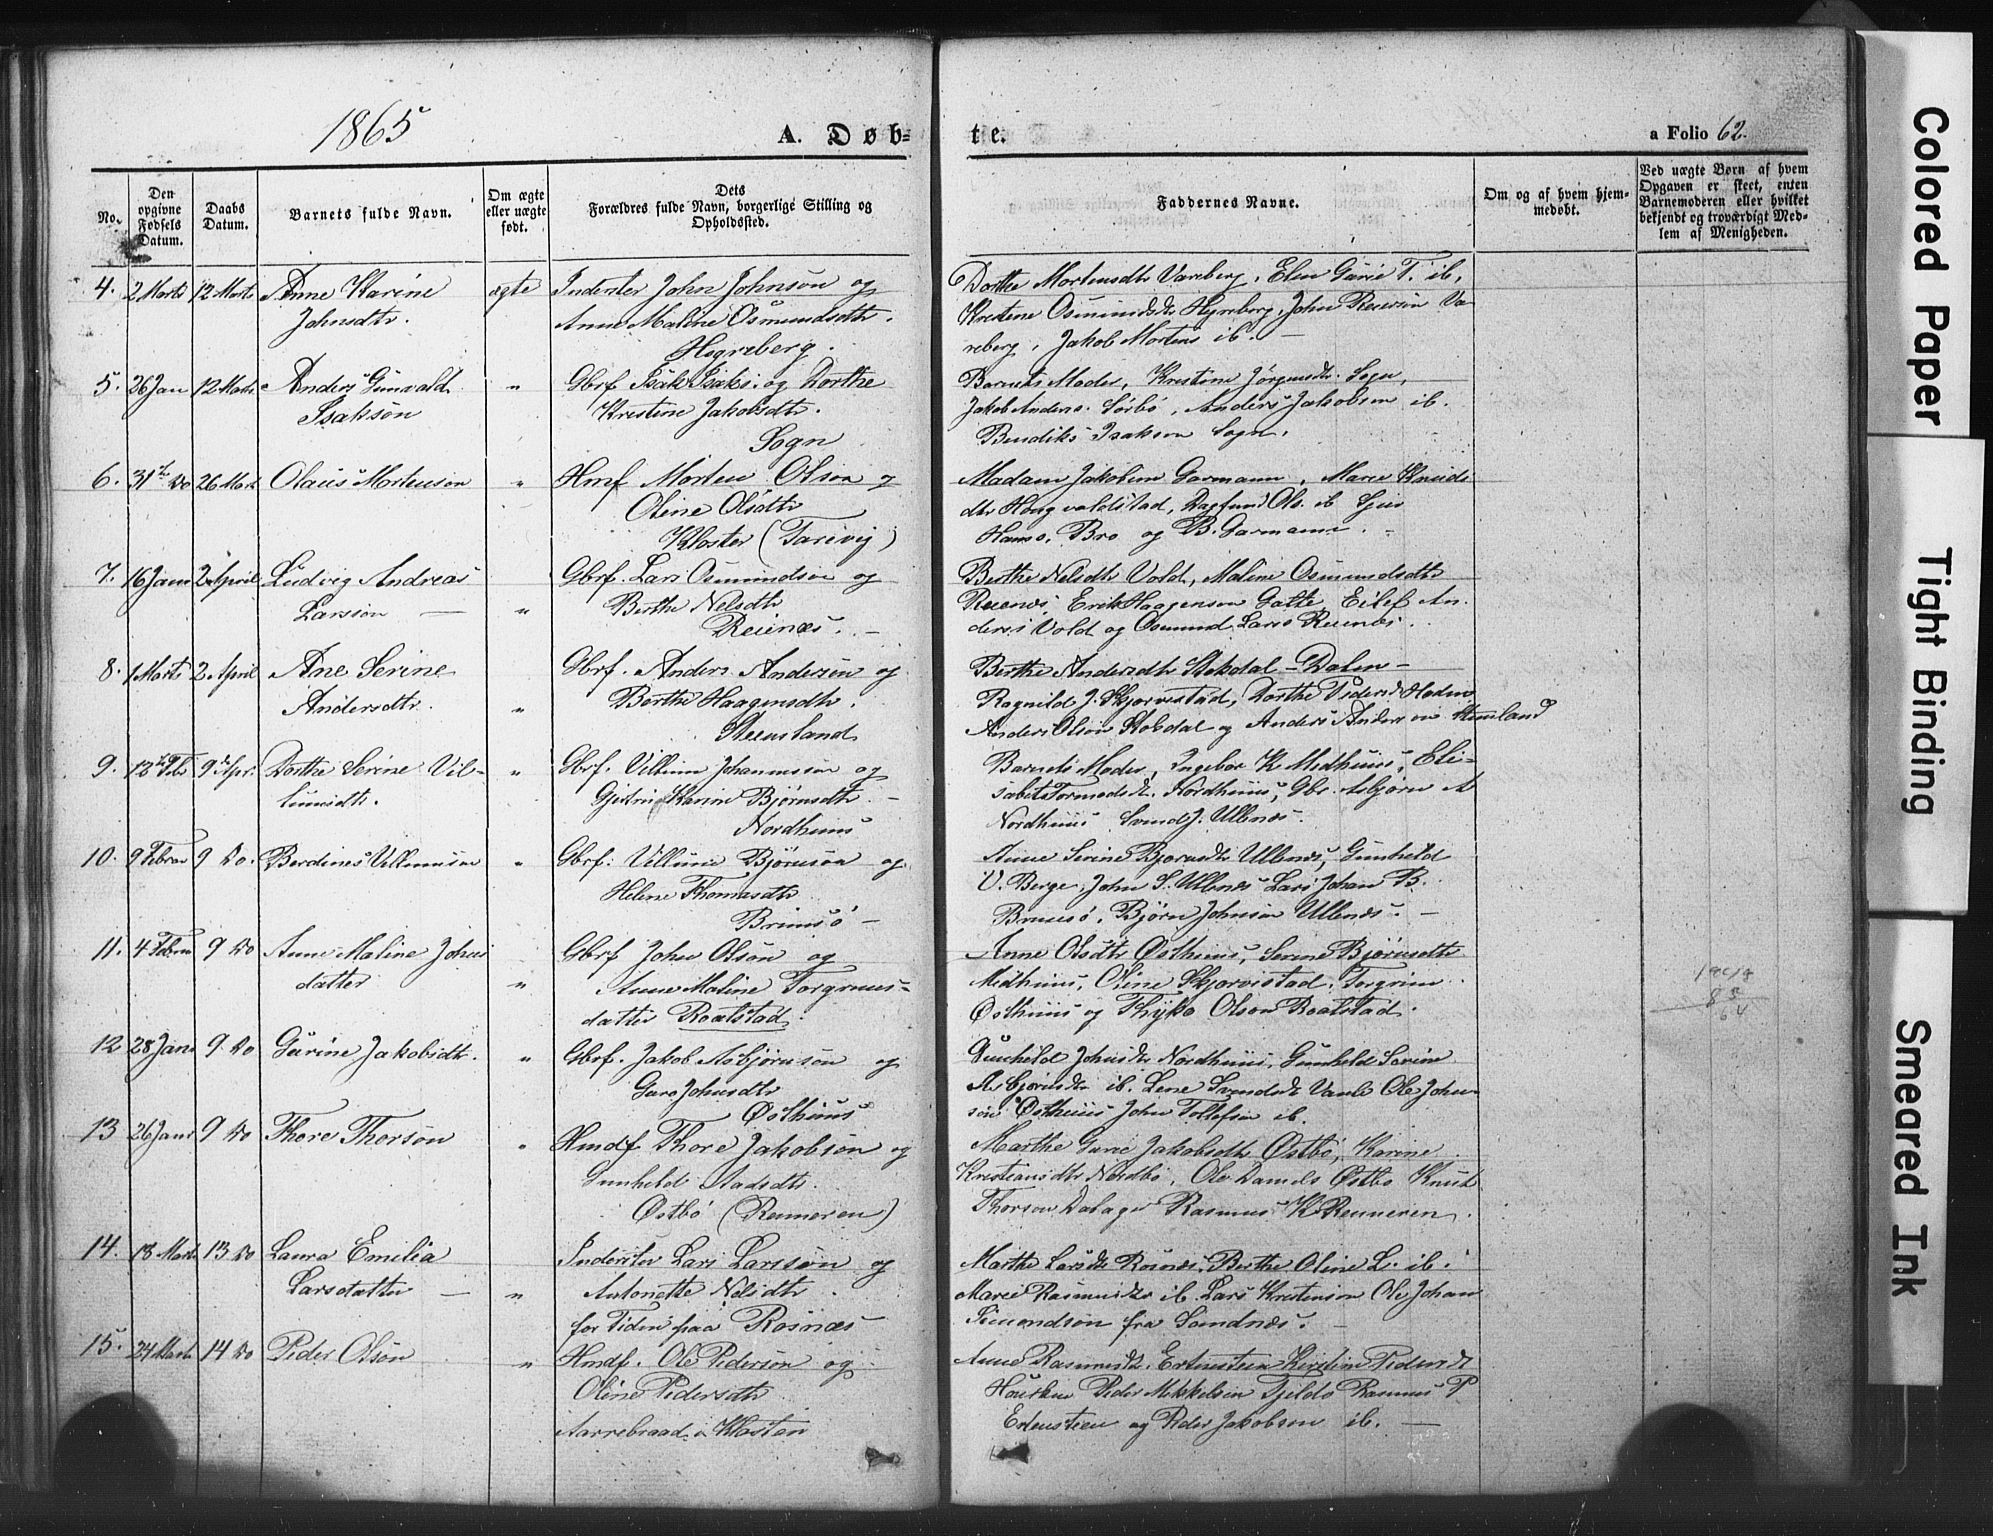 1865
A. Døb-
te.
a Folio 62.
No.
Den opgivne Fødsels Datum.
Daabs Datum.
Barnets fulde Navn.
Om ægte eller uægte født.
Dets Forældres fulde Navn, borgerlige Stilling og Opholdssted.
Faddernes Navne.
Om og af hvem hjemmedøbt.
Ved uægte Børn af hvem Opgaven er skeet, enten Barnemoderen eller hvilket bekjendt og troværdigt Medlem af Menigheden.
4. 2 Marts 12 Marts Anne Karine ægte Inderster John Johnson og
Johnsdtr. Anne Maline Osmundsdtr.
Hegreberg.
Dorthe Mortensdtr Vareberg, Elen Gurie T. ib,
Kristene Osmundsdtr Hegreberg, John Reierson Va
reberg, Jakob Mortens ib. —
5. 26 Jan 12 Marts Anders Gunvald " Gbrf Isak Isaks. og Dorthe
Isakson Kristine Jakobsdtr.
Sogn
Barnets Moder, Kristine Jørgensdtr. Sogn,
Jakob Anders. Sørbø, Anders Jakobsen ib.
Bendiks Isakson Sogn.
6. 31te Do 26 Mart Olaus Mortenson " Hmf Morten Olson og
Oline Olsdtr
Kloster (Tarevig)
Madam Jakobine Garmann, Maren Knuds
dtr Hongvaldstad, Dagfund Ols. ib
Hans. Bro og B. Garmann. -
7. 16 Janu 2 April Ludvig Andreas Gbrf. Lars Osmundsen og
Larsson — " Berthe Nelsdtr
Reienæs. —
Berthe Nelsdtr Vold, Maline Osmundsdtr
Reienæs, Erik Haagenson Galte, Eilef An.
ders i Vold og Osmund Lars Reienæs.
8. 1 Marts 2 April Ane Serine Gbrf. Anders Anderson og
Andersdtr. " Berthe Haagensdtr.
Steensland
Berthe Andersdtr Stokdal - Dalen -
Ragnild J. Skjørvestad, Dorthe Pedersd Hodne
Anders Olson Stokdal og Anders Anderson Steensland
9. 12te Feb 9de Apr. Dorthe Serine Vil- " Gbrf. Villum Johannesson og
lumsdtr. Gjertrud Karine Bjørnsdtr. —
Nordhuus
Barnets Moder, Ingebor K Midhuus, Eli-
sabet Tormodsdt. Nordhuus, Gbr. Asbjørn A
Nordhuus Svend J. Ulbnæs.
10. 9 Februar 9 Do. Berdines Villumsen " Gbrf. Villum Bjørnson og
Helene Thomasdtr
Brimsø —
Anne Serine Bjørnsdtr Ulbnæs, Gunheld
V. Berge, John S. Ulbnæs Lars Johan B.
Brimsø, Bjørn Johnson Ulbnæs. —
11. 4 Febru 9 Do Anne Maline Johns Gbrf John Olson og
datter " Anne Maline Torgrims-
datter Roalstad.
Anne Olsdtr Østhuus, Serine Bjørnsdtr
Midhuus, Oline Skjørvistad, Torgrim
Østhuus og Thyko Olson Roalstad.
85
64
12 28 Jan 9 Do Gurine Jakobsdtr. " Gbrf. Jakob Asbjørnson og
Guro Johnsdtr
Østhuus
Gunheld Johnsdtr Nordhuus, Gunheld Serine
Asbjørnsdtr ib. Lene Svendsdt Ole John-
son Østhuus John Tollefsen ib.
13 26 Janr 9 Do Thore Thorson " Hmdf Thore Jakobson og
Gunheld Aadsdtr.
Østbø (Renneren)
Marthe Gurie Jakobsdtr Østbø, Karine
Kristiansdtr Nordbø, Ole Daniels Østbø Knut
Thorson Dalager Rasmus K. Renneren.
14. 18 Mart 13 Do Laura Emilia Inderster Lars Larsson og
Larsdatter — " Antonette Nelsdtr.
for Tiden paa Rosnæs
Marthe Larsdt Rosnæs, Berthe Oline L. ib.
Marie Rasmusdtr ib. Lars Kristenson Ole Johan
Simondson fra Sandnæs.
15. 24 Marts 14 Do Peder Olson " Hmdf. Ole Pederson og
Oline Pedersdtr
Aarrebraad. i Klosten
Anne Rasmusdt. Ertensteen Kirstine Pedersdt
Hausken Peder Mikkelsen Tjeldø Rasmus P
Ertensteen og Peder Jakobson ib. —
Colored Paper
Tight Binding
Smeared Ink